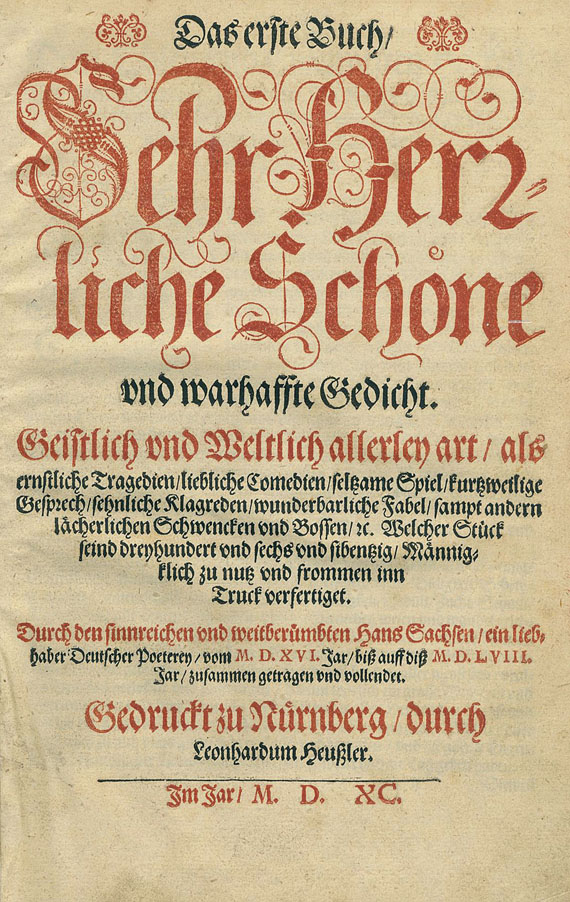 Das erste Buch/
Sehr Herr⸗
liche Schöne
vnd warhaffte Gedicht.
Geistlich vnd Weltlich allerley art / als
ernstliche Tragedien/liebliche Comedien/seltzame Spiel/kurtzweilige
Gesprech/sehnliche Klagreden/wunderbarliche Fabel/sampt andern
lächerlichen Schwencken vnd Bossen/ꝛc. Welcher Stück
seind dreyhundert vnd sechs vnd sibentzig/Männig⸗
klich zu nutz vnd frommen inn
Truck verfertiget.
Durch den sinnreichen vnd weitberümbten Hans Sachsen/ein lieb⸗
haber Deutscher Poeterey/vom M. D. XVI. Jar/biß auff diß M. D. LVIII.
Jar/zusammen getragen vnd vollendet.
Gedruckt zu Nürnberg/durch
Leonhardum Heußler.
Im Jar/ M. D. XC.